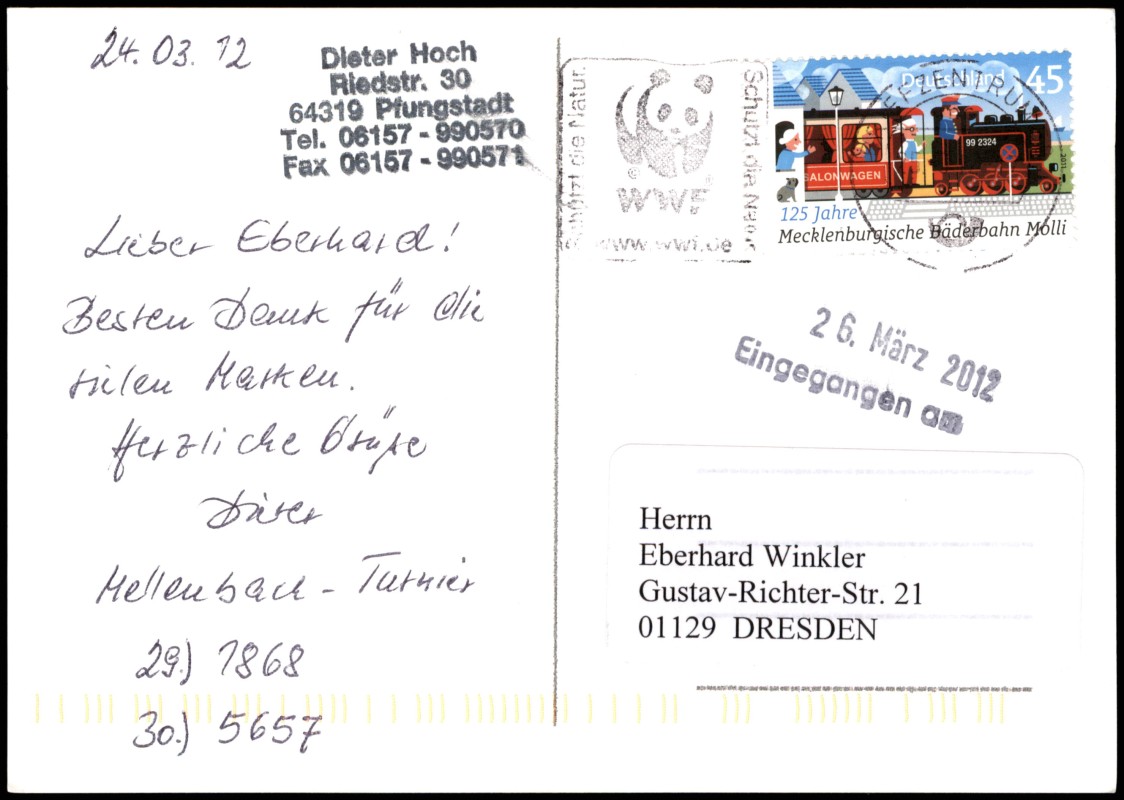 24.03.12
Dieter Hoch
Riedstr. 30
64319 Pfungstadt
Tel. 06157 - 990570
Fax 06157 - 990571
Lieber Eberhard!
Besten Dank für die
vielen Marken.
Herzliche Grüße
Dieter
Mellenbach - Turnier
29.) 1868
30.) 5657
Schützt die Natur.
WWF
www.wwf.de
Schützt die Natur.
Deutschland 45
EFZENTRUM
99 2324
SALONWAGEN
2011
125 Jahre
Mecklenburgische Bäderbahn Molli
26. März 2012
Eingegangen am
Herrn
Eberhard Winkler
Gustav-Richter-Str. 21
01129 DRESDEN